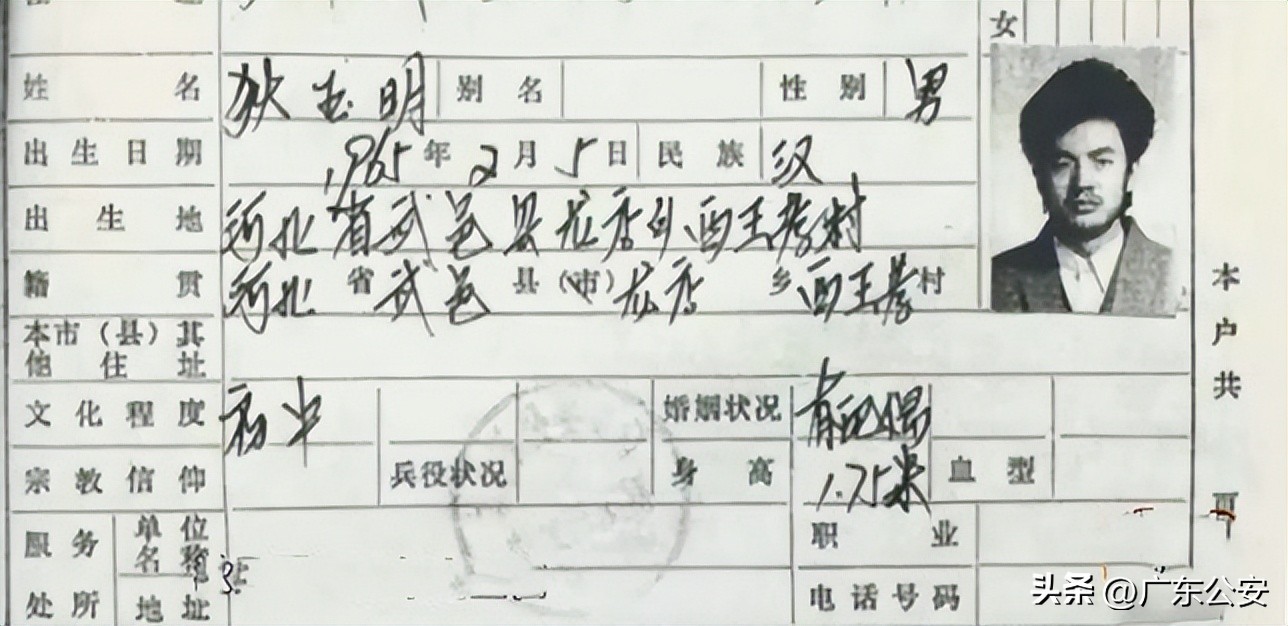 女
姓名 狄玉明 别名 性别 男
出生日期 1965年2月5日 民族 汉
出生地 河北省武邑县龙店乡西王孝村
籍贯 河北省武邑县(市)龙店乡西王孝村
本市(县)其他住址
文化程度 初中 婚姻状况 有配偶
宗教信仰 兵役状况 身高 1.75米 血型
服务处所 单位名称 职业
地址 电话号码
本户共
页
头条 @广东公安